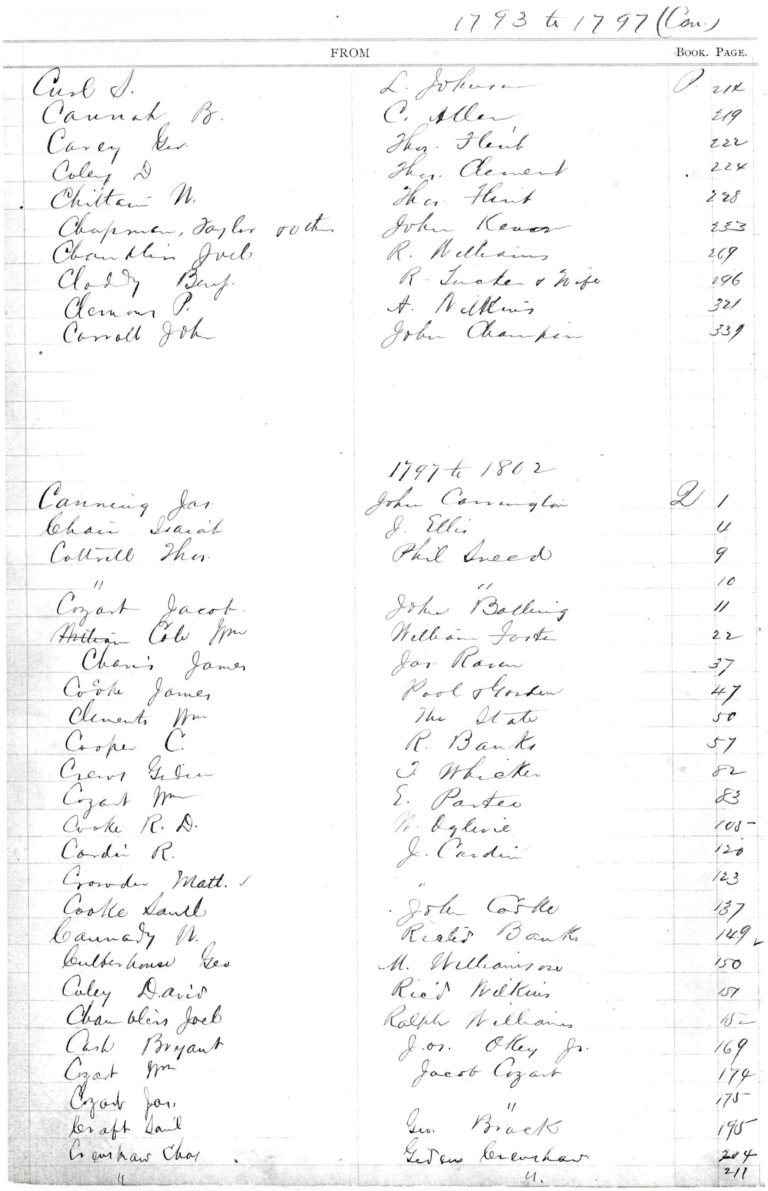 1793 to 1797 (Con.)
FROM BOOK. PAGE.
Curl S. L. Johnson P 214
Cannah B. C. Allen 219
Carey Geo. Thos. Flint 222
Coley D Thos. Clement 224
Chittam W. Thos Flint 228
Chapman, Taylor John 233
Chandlin Joel R. Williams 269
Claddy Benj. R. Tucker & Wife 296
Clemons P. A. Wilkins 321
Carroll John John Champin 339
1797 to 1802
Canning Jas. John Carrington Q 1
Chair Isaiah J. Ellis 4
Cottrell Thos. Phil Sneed 9
" " 10
Cozart Jacob. John Bolling 11
Cole Wm William Foster 22
Chavis James Jas Raven 37
Cooke James Pool & Gorden 47
Clements Wm The State 50
Cooper C. R. Banks 57
Crews Giden T Whicker 82
Cozart Wm E. Partee 83
Cooke R. D. W. Ogilvie 105
Cardin R. J. Cardin 120
Crowder Matt. " 123
Cooke Saml John Cooke 137
Cannady W. Richd Banks 149
Culberhouse Geo M. Williamson 150
Coley David Ric'd Wilkins 151
Chambliss Joel Ralph Williams 152
Cash Bryant Jos. Okey Jr. 169
Cozart Wm Jacob Cozart 174
Cozart Jas. " 175
Craft Saml Geo. Brack 195
Crenshaw Chas Giden Crenshaw 204
" " 211